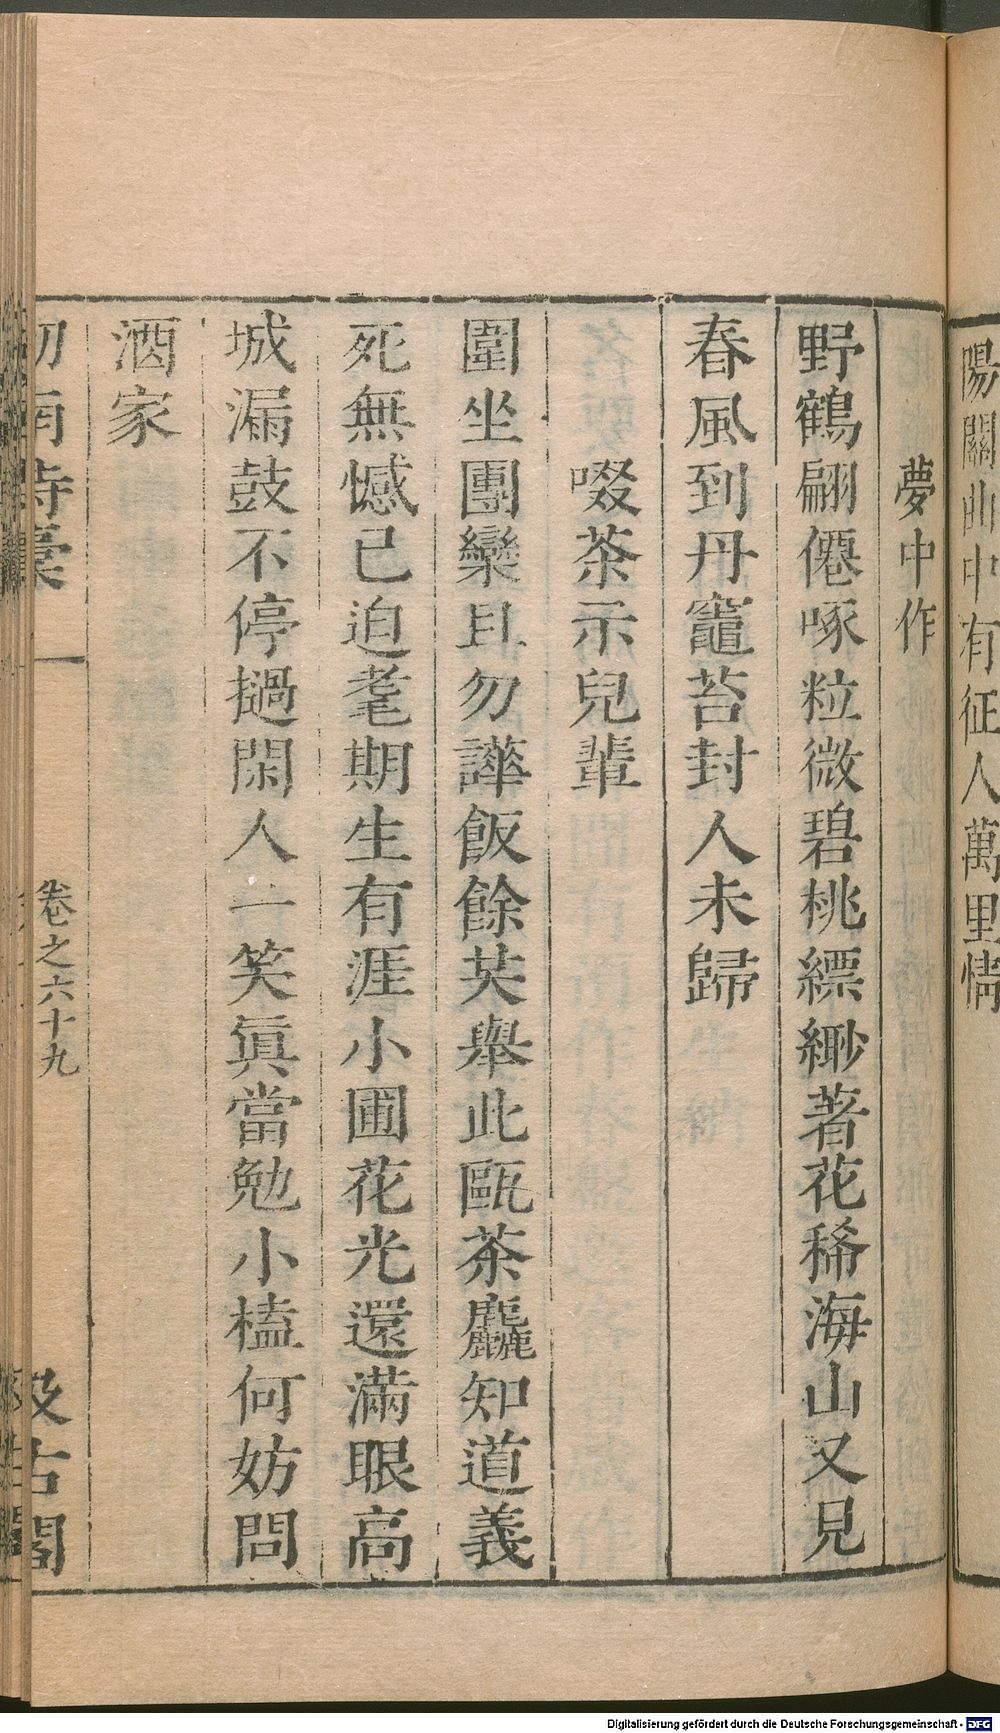 陽關曲中有征人萬里情
夢中作
野鶴翩僊啄粒微碧桃縹緲著花稀海山又見
春風到丹竈苔封人未歸
啜茶示兒輩
圍坐團欒且勿譁飯餘共舉此甌茶麤知道義
死無憾已迫耄期生有涯小圃花光還滿眼高
城漏鼓不停撾閑人一笑眞當勉小榼何妨問
酒家
劍南詩稾
卷之六十九
汲古閣
Digitalisierung gefördert durch die Deutsche Forschungsgemeinschaft - DFG